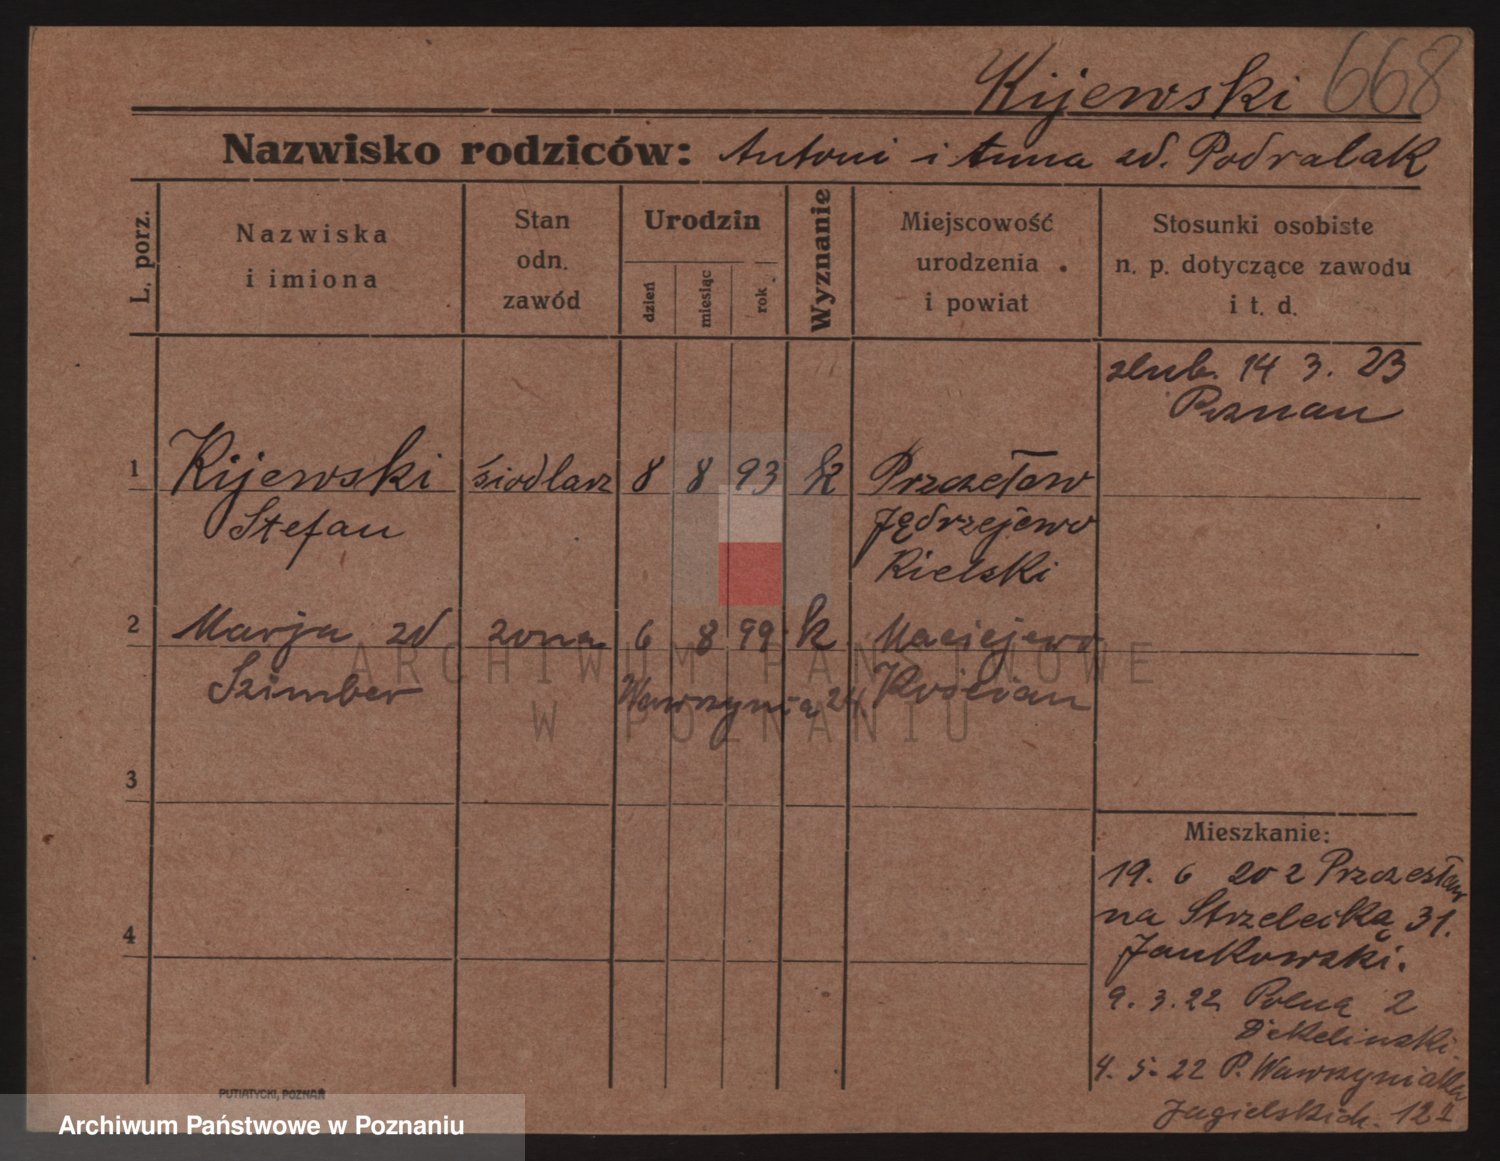 Kijewski 668
Nazwisko rodziców: Antoni i Anna zd. Podralak
L. porz.
Nazwiska
i imiona
Stan
odn.
zawód
Urodzin
dzień
miesiąc
rok
Wyznanie
Miejscowość
urodzenia
i powiat
Stosunki osobiste
n. p. dotyczące zawodu
i t. d.
ślub. 14 3. 23
Poznań
1 Kijewski siodlarz 8 8 93 k Przczełow
Stefan Jędrzejewo
Kielski
2 Marja zd żona 6 8 99 k Maciejewo
Szimber Wawrzynia 24 Kościan
3
4
Mieszkanie:
19. 6 20 z Przczesław
na Strzelecką 31.
Jankowski.
9. 3. 22 Polną 2
4. 5. 22 P. Wawrzyniaka
Jagielskich. 12
PUTIATYCKI, POZNAŃ
ARCHIWUM PAŃSTWOWE
W POZNANIU
Archiwum Państwowe w Poznaniu